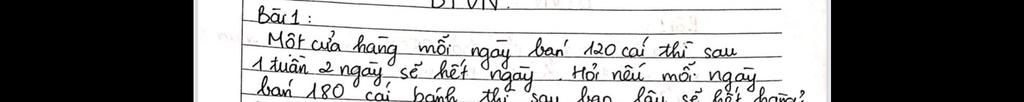 BTVN.
Bài 1 :
Một cửa hàng mỗi ngày bán 120 cái thì sau
1 tuần 2 ngày sẽ hết ngày. Hỏi nếu mỗi ngày
bán 180 cái bánh thì sau bao lâu sẽ hết hàng?